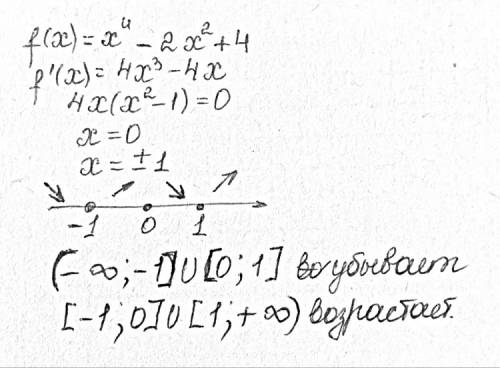 f(x) = x⁴ - 2x² + 4
f'(x) = 4x³ - 4x
4x(x² - 1) = 0
x = 0
x = ± 1
-1 0 1
(-∞; -1] ∪ [0; 1] убывает
[-1; 0] ∪ [1; +∞) возрастает.